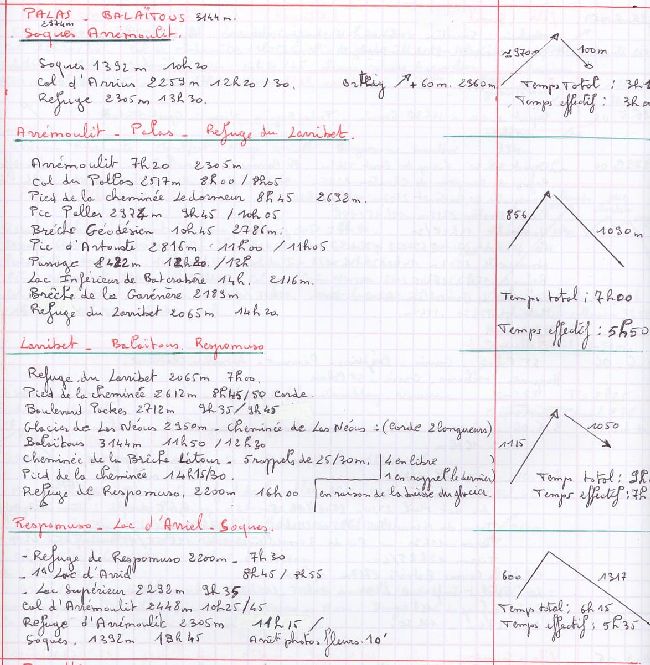 PALAS - BALAÏTOUS 3144m.
2974m
Soques Arrémoulit.
Soques 1392m 10h20
Col d'Arrius 2259m 12h20/30. ↗ +60m. 2360m
Refuge 2305m 13h30.
970 100m
Temps Total : 3h1
Temps effectif : 3h0
Arrémoulit - Palas - Refuge du Larribet.
Arrémoulit 7h20 2305m
Col du Pallas 2517m 8h00/8h05
Pied de la cheminée Ledormeur 8h45 2692m.
Pic Pallas 2974m 9h45/10h05
Brêche Géodésien 10h45 2786m.
Pic d'Artouste 2816m 11h00/11h05
Passage 2422m 12h20/13h
Lac Inférieur de Batcrabère 14h. 2116m.
Brêche de la Garénère 2189m
Refuge du Larribet 2065m 14h20.
854 1090m
Temps total : 7h00
Temps effectif : 5h50
Larribet - Balaïtous. Respomuso
Refuge du Larribet 2065m 7h00.
Pied de la cheminée 2612m 8h45/50 corde.
Boulevard Packes 2712m 9h35/9h45
Glacier de Las Néous 2950m - Cheminée de Las Néous : (corde 2 longueurs)
Balaïtous 3144m 11h50/12h30
Cheminée de la Brêche Latour - 5 rappels de 25/30m. 4 en libre
Pied de la cheminée 14h15/30. 1 en rappel le dernier
Refuge de Respomuso. 2200m 16h00 en raison de la baisse du glacier.
1115 1050
Temps total : 9h
Temps effectif : 7h
Respomuso - Lac d'Arriel - Soques.
- Refuge de Respomuso 2200m - 7h30
- 1er Lac d'Arriel 8h45/8h55
- Lac Supérieur 2292m 9h35
Col d'Arrémoulit 2448m 10h25/45
Refuge d'Arrémoulit 2305m 11h15/
Soques. 1392m 13h45 Arrêt photos fleurs 10'
600 1317
Temps total : 6h15
Temps effectif : 5h35